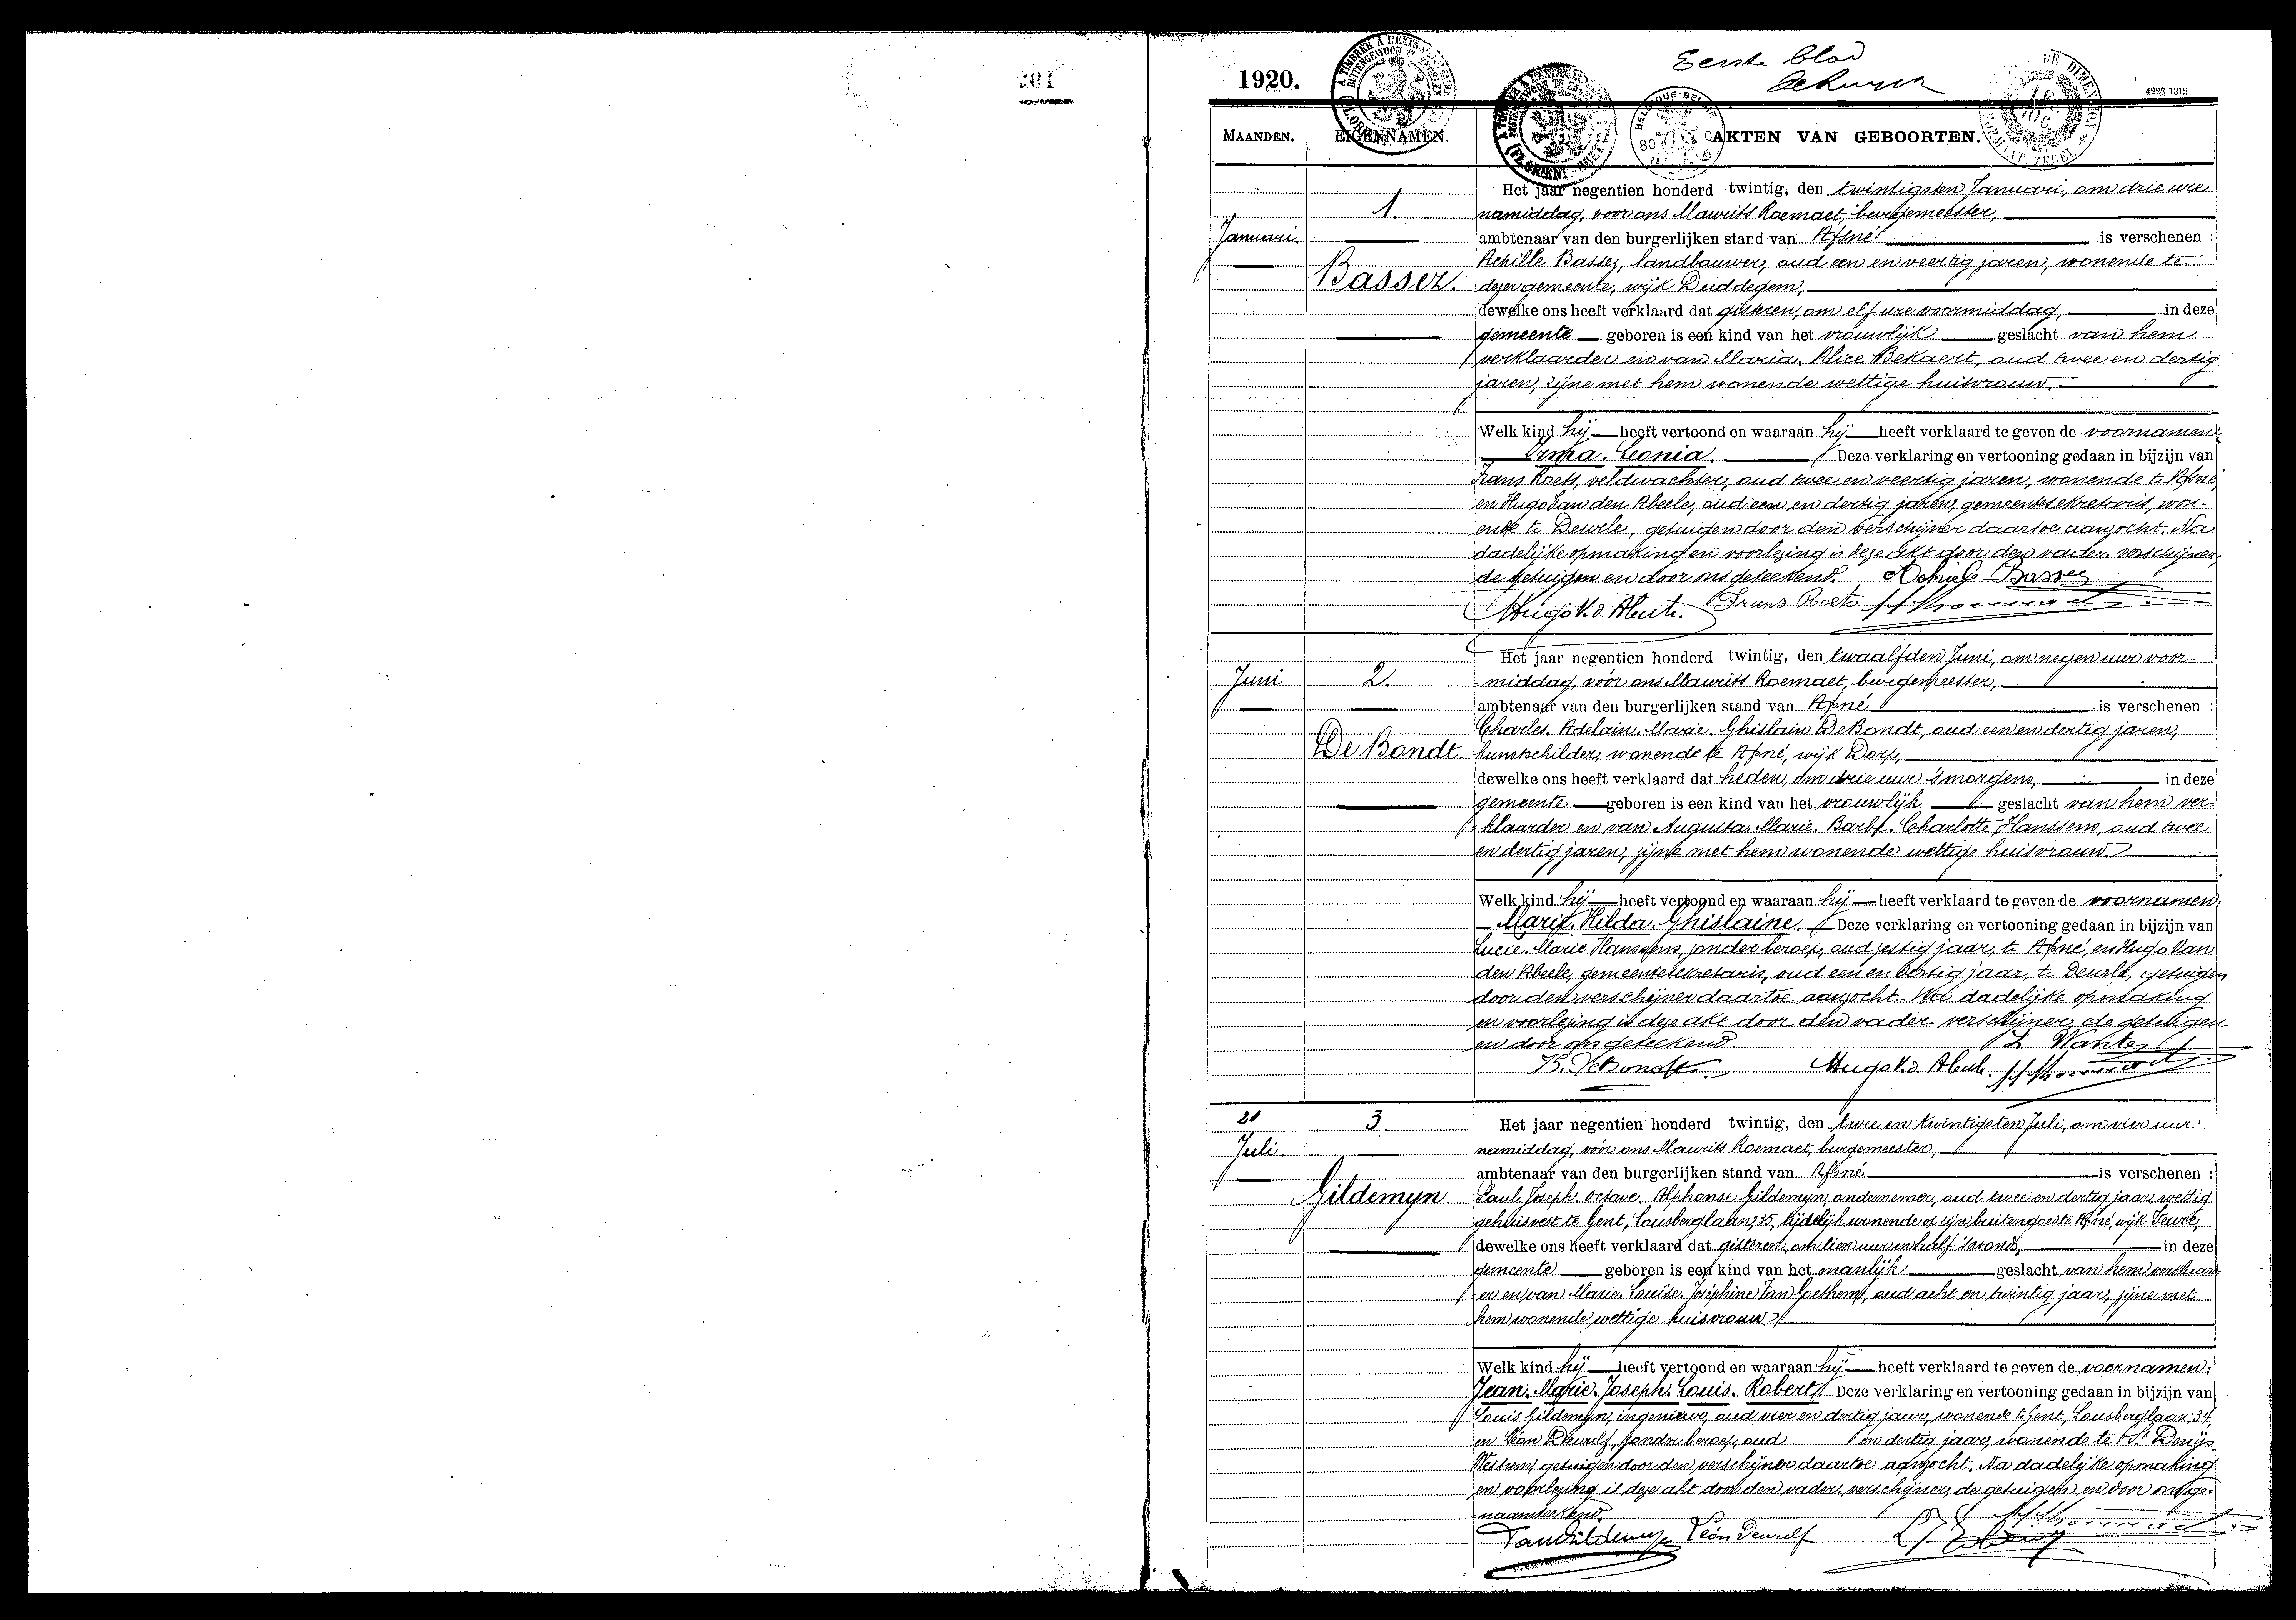 1920.
Eerste blad
4228-1312
MAANDEN.
EIGENNAMEN.
AKTEN VAN GEBOORTEN.
Het jaar negentien honderd twintig, den twintigsten Januari, om drie ure
1.
namiddag, voor ons Maurits Roemaet, burgemeester,
Januari.
ambtenaar van den burgerlijken stand van Afsné is verschenen :
Achille Bassez, landbouwer, oud een en veertig jaren, wonende te
Bassez.
dezer gemeente, wijk Duddegem,
dewelke ons heeft verklaard dat gisteren, om elf ure voormiddag, in deze
gemeente geboren is een kind van het vrouwlijk geslacht van hem
verklaarder en van Maria. Alice Bekaert, oud twee en dertig
jaren, zijne met hem wonende wettige huisvrouw.
Welk kind hij heeft vertoond en waaraan hij heeft verklaard te geven de voornamen:
Irma. Leonia. Deze verklaring en vertooning gedaan in bijzijn van
Frans Roets, veldwachter, oud twee en veertig jaren, wonende te Afsné,
en Hugo Van den Abeele, oud een en dertig jaren, gemeentesekretaris, won-
ende te Deurle, getuigen door den verschijner daartoe aanzocht. Na
dadelijke opmaking en voorlezing is deze akt door den vader-verschijner,
de getuigen en door ons geteekend. Achiele Bassez
Hugo V. d. Abeele. Frans Roets
Het jaar negentien honderd twintig, den twaalfden Juni, om negen uur voor-
Juni
2.
middag, vóór ons Maurits Roemaet, burgemeester,
ambtenaar van den burgerlijken stand van Afsné is verschenen :
Charles. Adelain. Marie. Ghislain De Bondt, oud een en dertig jaren,
De Bondt.
kunstschilder, wonende te Afsné, wijk Dorp,
dewelke ons heeft verklaard dat heden, om drie uur 's morgens, in deze
gemeente geboren is een kind van het vrouwlijk geslacht van hem ver-
klaarder en van Augusta. Marie. Barbe. Charlotte Hanssens, oud twee
en dertig jaren, zijne met hem wonende wettige huisvrouw.
Welk kind hij heeft vertoond en waaraan hij heeft verklaard te geven de voornamen:
Marie. Hilda. Ghislaine. Deze verklaring en vertooning gedaan in bijzijn van
Lucie. Marie Hanssens, zonder beroep, oud zestig jaar, te Afsné, en Hugo Van
den Abeele, gemeentesekretaris, oud een en dertig jaar, te Deurle, getuigen
door den verschijner daartoe aanzocht. Na dadelijke opmaking
en voorlezing is deze akt door den vader-verschijner, de getuigen
en door ons geteekend.
Hugo V. d. Abeele.
21
3.
Het jaar negentien honderd twintig, den twee en twintigsten Juli, om vier uur
Juli.
namiddag, vóór ons Maurits Roemaet, burgemeester,
ambtenaar van den burgerlijken stand van Afsné is verschenen :
Gildemyn.
Paul. Joseph. Octave. Alphonse Gildemyn, ondernemer, oud twee en dertig jaar, wettig
gehuisvest te Gent, Lousberglaan, 35, tijdelijk wonende op zijn buitengoed te Afsné, wijk
dewelke ons heeft verklaard dat gisteren, om tien uur en half 's avonds, in deze
gemeente geboren is een kind van het manlijk geslacht van hem verklaar-
er en van Marie. Louise. Joséphine Van Loethem, oud acht en twintig jaar, zijne met
hem wonende wettige huisvrouw.
Welk kind hij heeft vertoond en waaraan hij heeft verklaard te geven de voornamen:
Jean. Marie. Joseph. Louis. Robert. Deze verklaring en vertooning gedaan in bijzijn van
Louis Gildemyn, ingenieur, oud vier en dertig jaar, wonende te Gent, Lousberglaan, 34,
en Léon Dewulf, zonder beroep, oud en dertig jaar, wonende te St Denijs-
Westrem, getuigen door den verschijner daartoe aanzocht. Na dadelijke opmaking
en voorlezing is deze akt door den vader-verschijner, de getuigen en door ons ge-
naamteekend.
Léon Dewulf